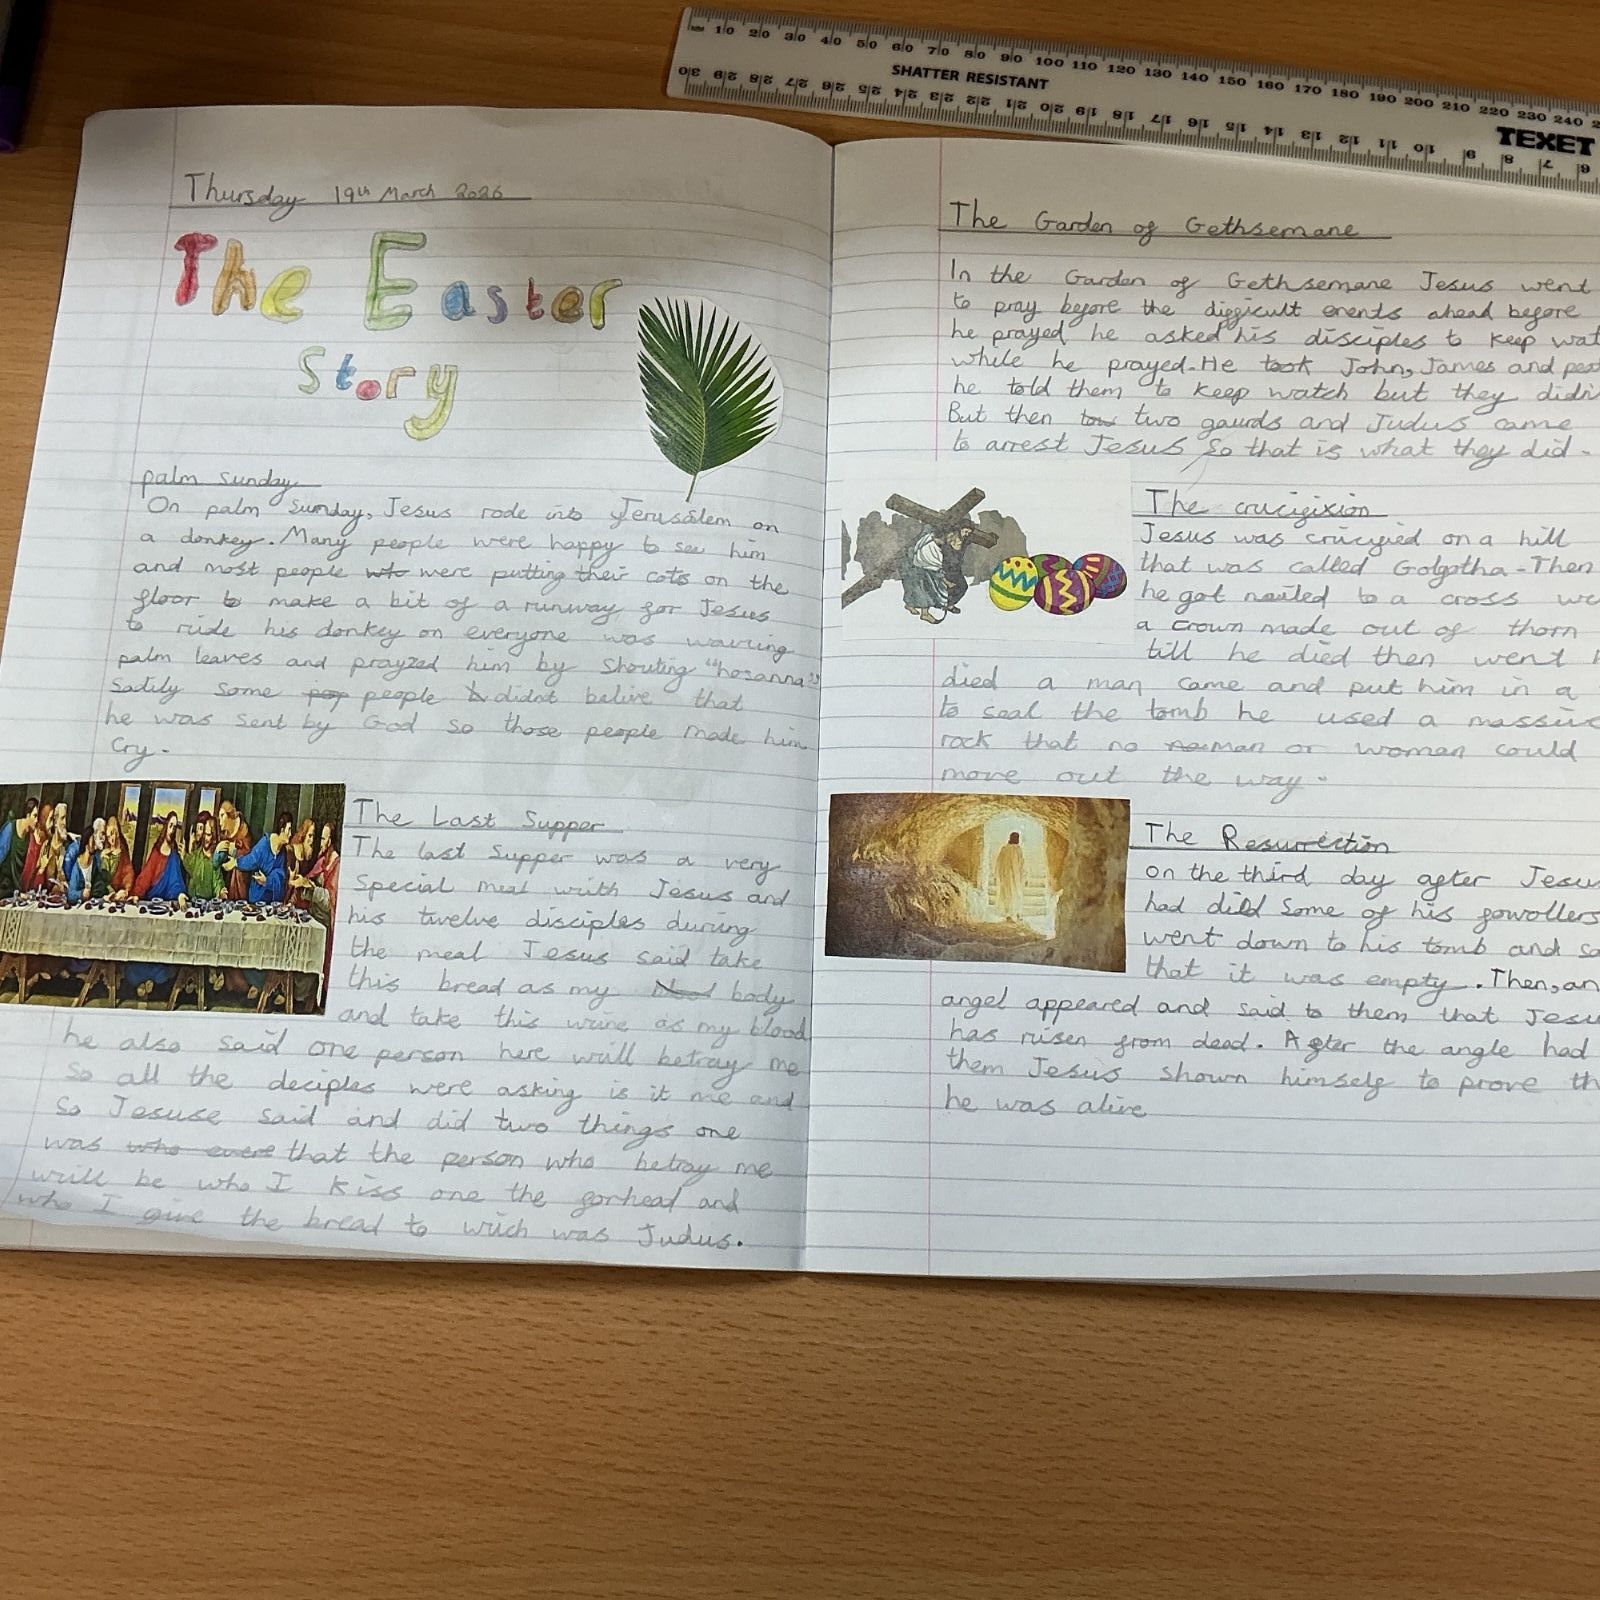 Thursday 19th March 2026
The Easter
Story
palm sunday
On palm Sunday, Jesus rode into Jerusalem on
a donkey. Many people were happy to see him
and most people who were putting their cots on the
floor to make a bit of a runway for Jesus
to ride his donkey on everyone was waving
palm leaves and prayzed him by shouting "hosanna"
Sadily some pop people b didnt belive that
he was sent by God so those people made him
Cry.
The Last Supper
The last Supper was a very
Special meal with Jesus and
his twelve disciples during
the meal Jesus said take
this bread as my blood body
and take this wine as my blood
he also said one person here will betray me
So all the deciples were asking is it me and
So Jesuse said and did two things one
was who evere that the person who betray me
will be who I kiss one the forhead and
who I give the bread to wich was Judus.
The Garden of Gethsemane
In the Garden of Gethsemane Jesus went
to pray before the difficult events ahead before
he prayed he asked his disciples to keep wat
while he prayed. He took John, James and
he told them to keep watch but they didn
But then two gaurds and Judus came
to arrest Jesus So that is what they did.
The crucifixion
Jesus was crucified on a hill
that was called Golgotha. Then
he got nailed to a cross
a crown made out of thorn
till he died then went
died a man came and put him in a
to seal the tomb he used a massive
rock that no man or woman could
move out the way.
The Resurrection
on the third day after Jesus
had died Some of his fowollers
went down to his tomb and
that it was empty. Then, an
angel appeared and said to them that Jesu
has risen from dead. After the angle had
them Jesus shown himself to prove th
he was alive
mm 10 20 30 40 50 60 70 80 90 100 110 120 130 140 150 160 170 180 190 200 210 220 230 240
SHATTER RESISTANT
TEXET
30 29 28 27 26 25 24 23 22 21 20 19 18 17 16 15 14 13 12 11 10 9 8 7 6